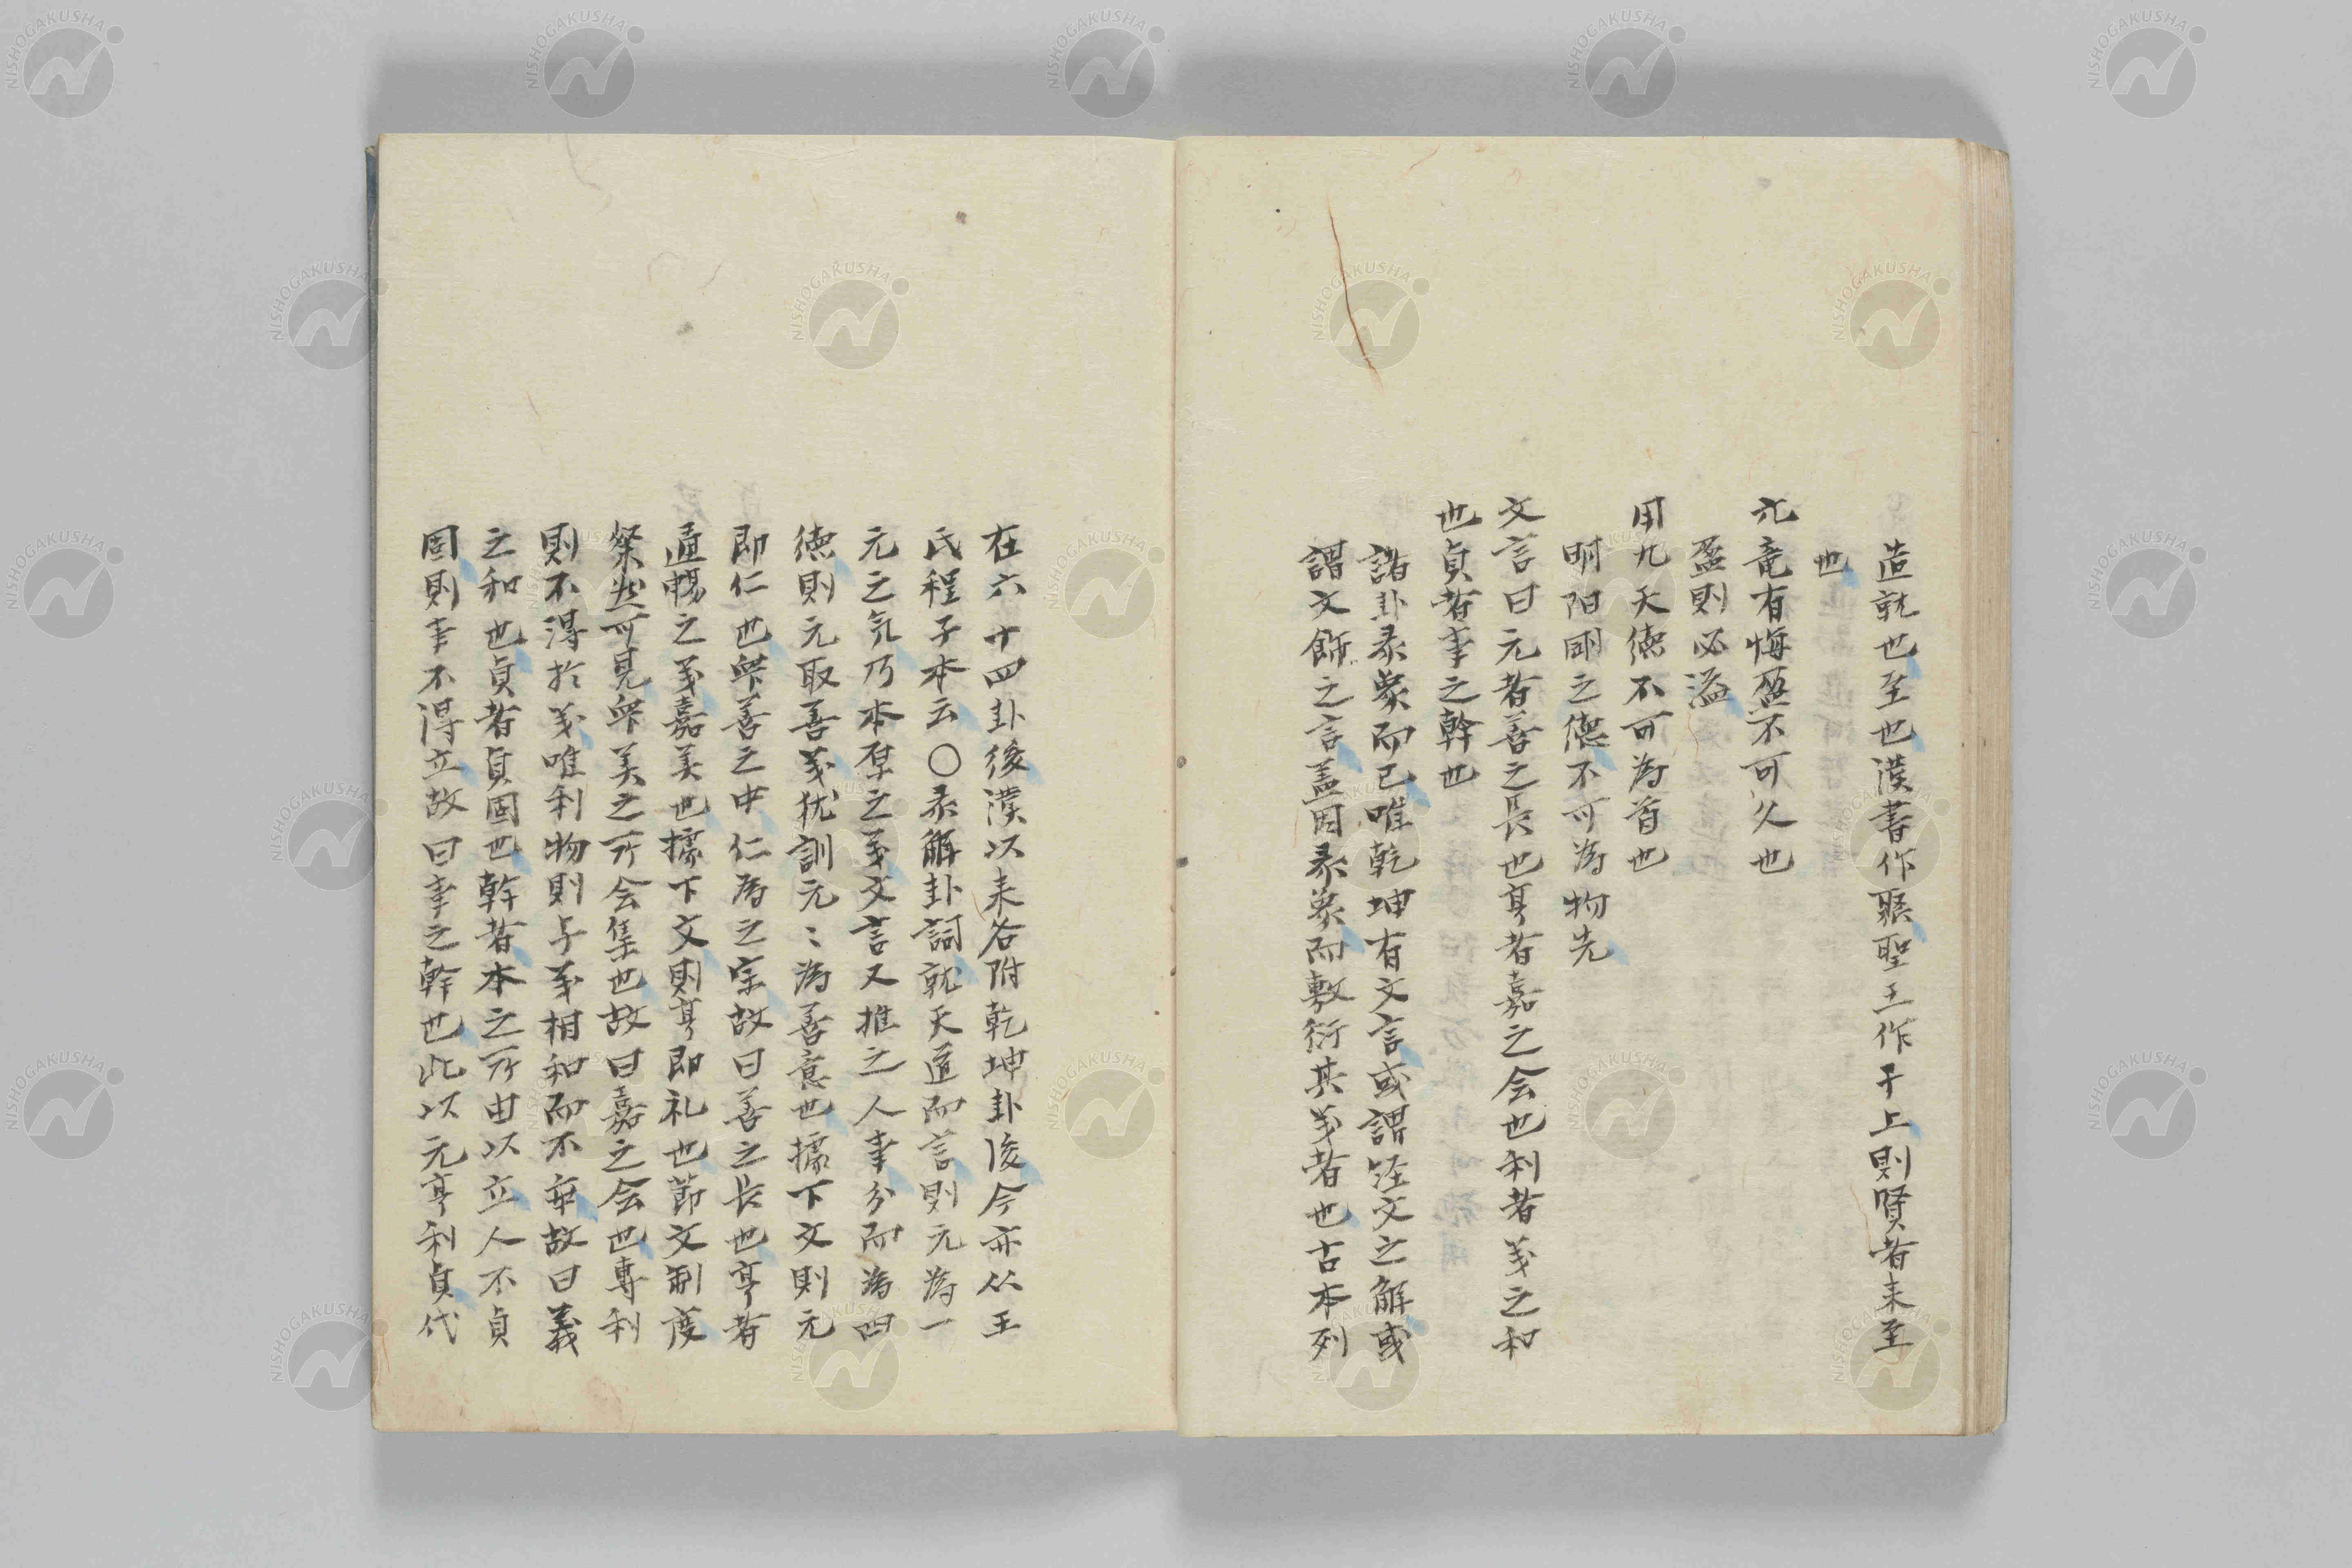 造就也至也漢書作聚聖王作于上則賢者未至
也
亢竜有悔盈不可久也
盈則必溢
用九天徳不可為首也
明陽剛之徳不可為物先
文言曰元者善之長也亨者嘉之会也利者义之和
也貞者事之幹也
諸卦彖象而已唯乾坤有文言或謂経文之解或
謂文飾之言盖因彖象而敷衍其义者也古本列
在六十四卦後漢以来各附乾坤卦後今亦从王
氏程子本云〇彖解卦詞就天道而言則元為一
元之気乃本原之义文言又推之人事分而為四
徳則元取善义犹訓元〻為善意也據下文則元
即仁也衆善之中仁為之宗故曰善之長也亨者
通暢之义嘉美也據下文則亨即礼也節文制度
粲然可見衆美之所会集也故曰嘉之会也専利
則不得於义唯利物則与义相和而不乖故曰義
之和也貞者貞固也幹者本之所由以立人不貞
固則事不得立故曰事之幹也此以元亨利貞代
NISHOGAKUSHA